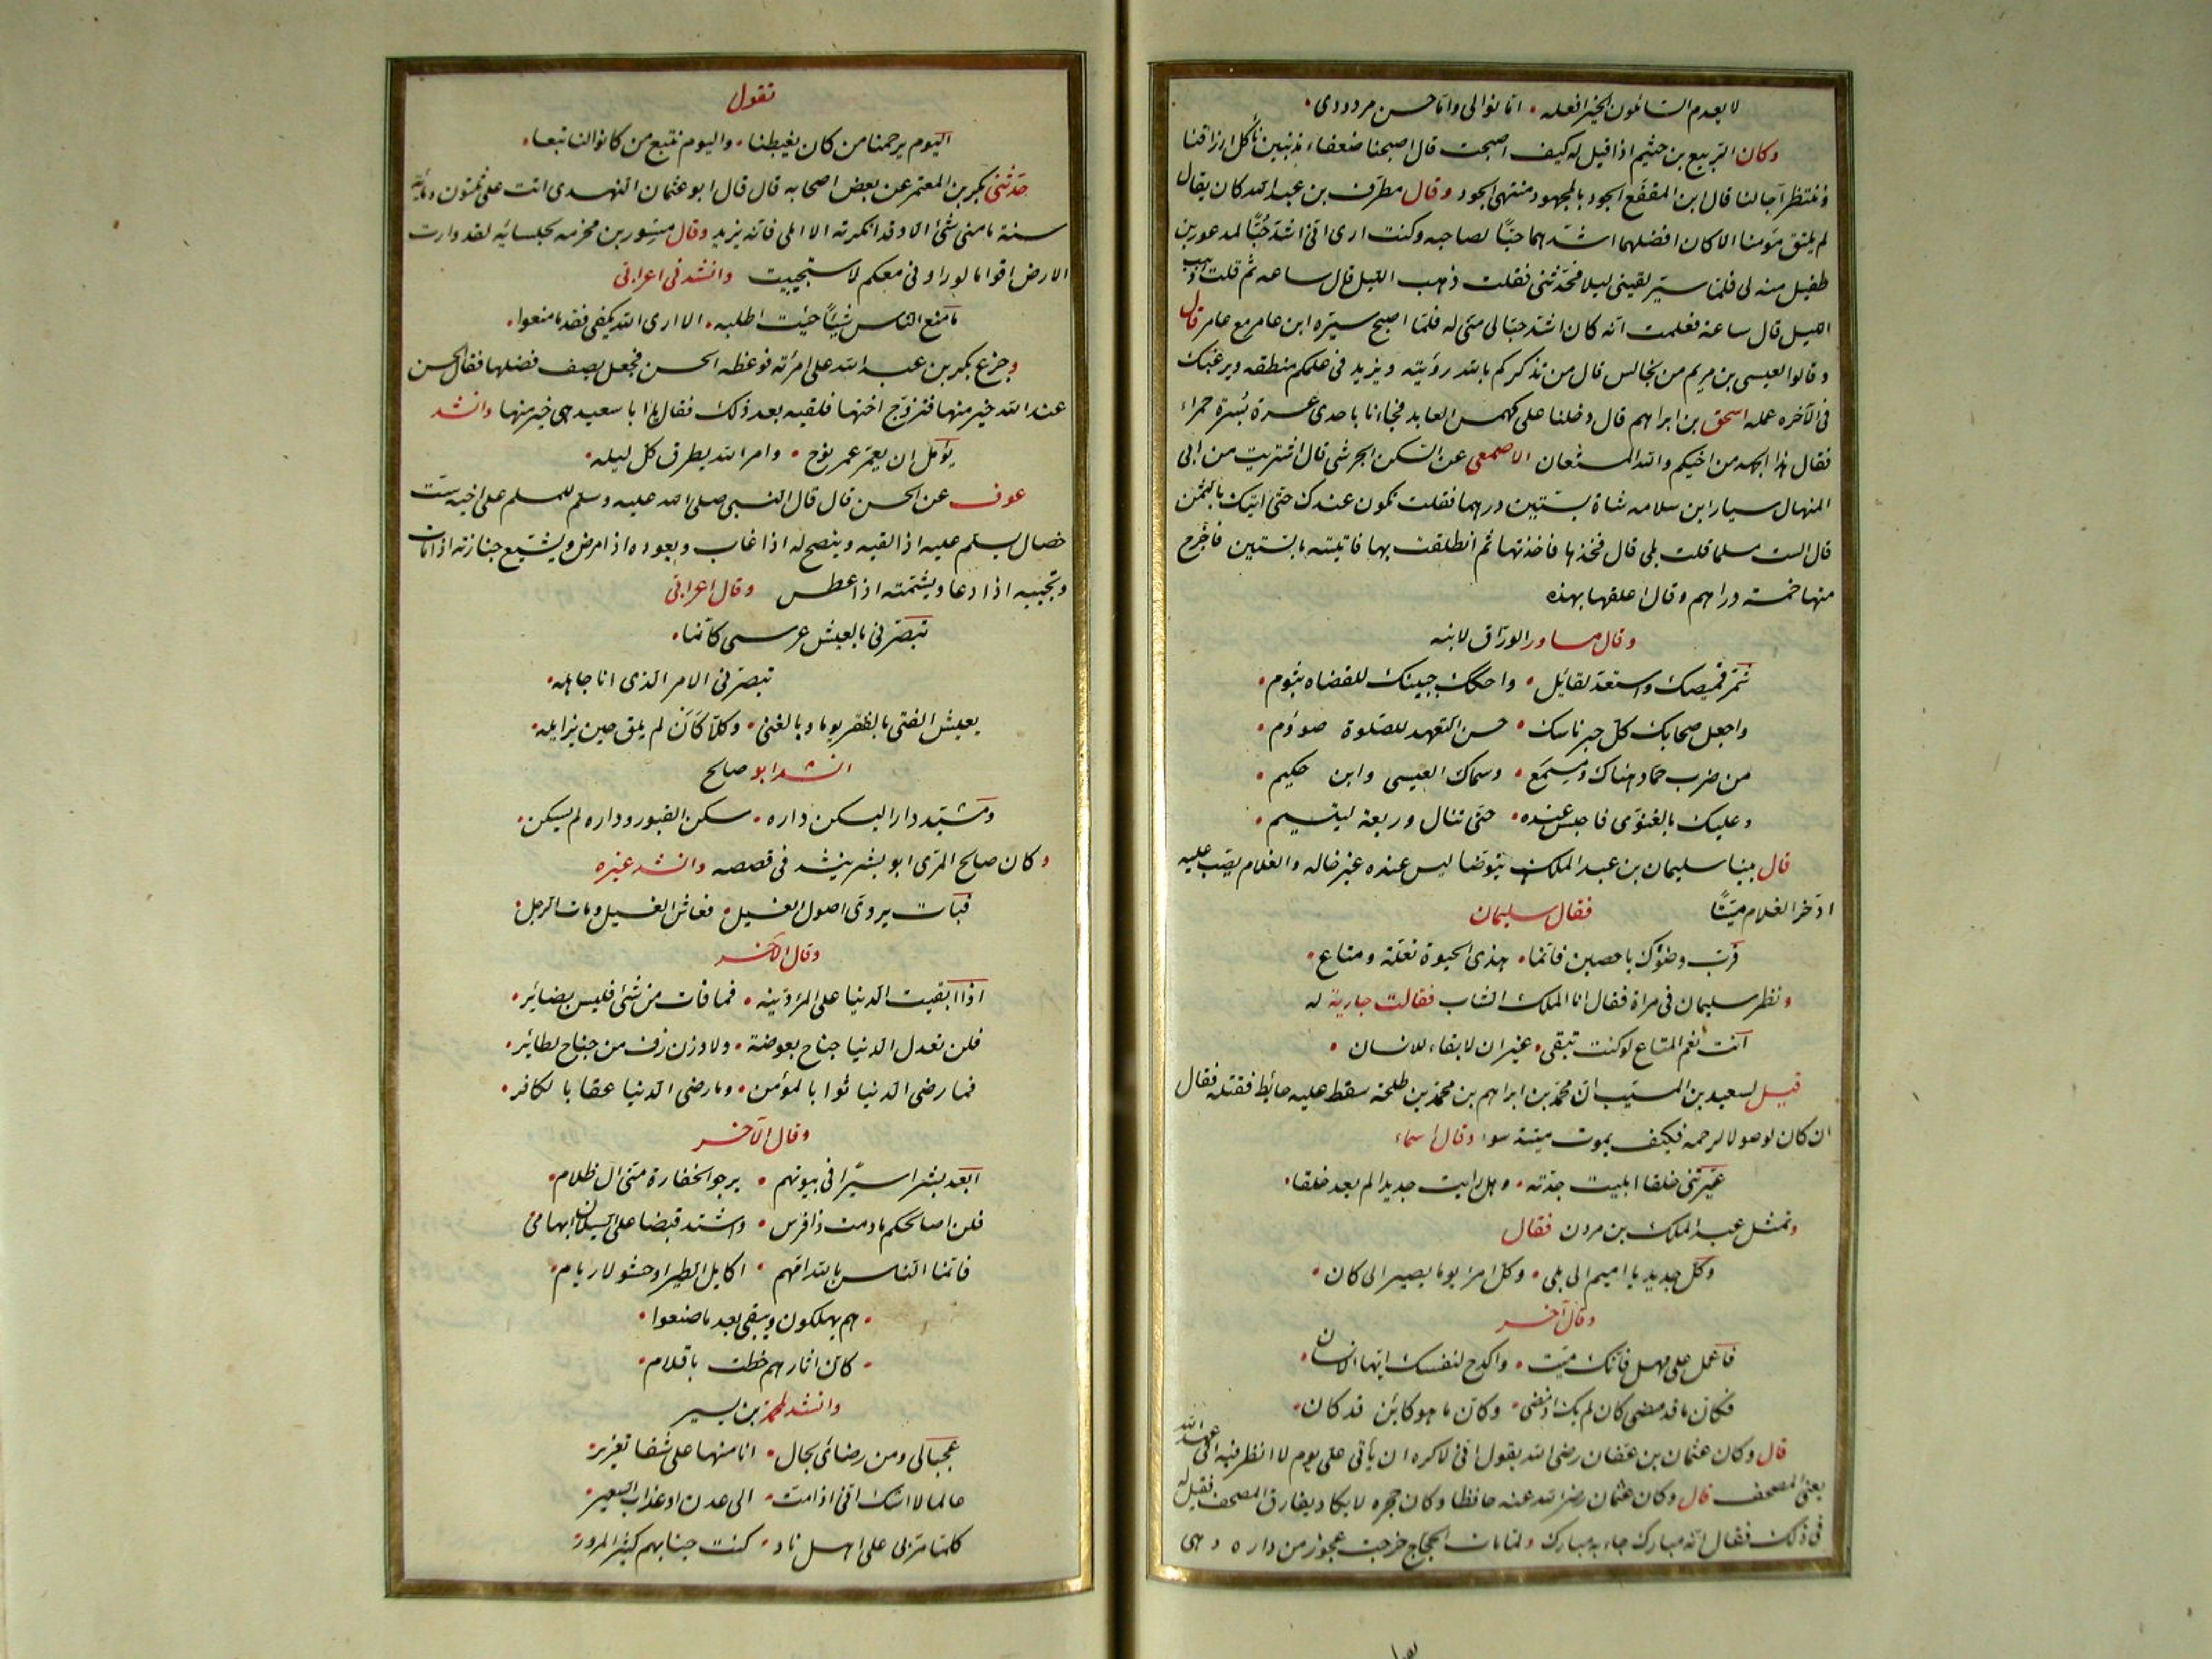 لا يعدم السائلون الخير افعله • اما نوالى واما حسن مردودى •
وكان الربيع بن خثيم اذا قيل له كيف اصبحت قال اصبحنا ضعفاء مذنبين نأكل ارزاقنا
وننتظر آجالنا قال ابن المقفع الجود بالمجهود منتهى الجود وقال مطرف بن عبد الله كان يقال
لم يلتق مؤمنا الا كان افضلهما اشدهما حبًّا لصاحبه وكنت ارى انى اشد حُبًّا لمدعور بن
طفيل منه لى فلما سير لقينى ليلا فحدثنى فقلت ذهب الليل قال ساعه ثم قلت ذهب
الليل قال ساعة فعلمت انه كان اشد حبا لى منى له فلما اصبح سيره ابن عامر مع عامر قال
وقالوا لعيسى بن مريم من نجالس قال من تذكركم بالله رؤيته ويزيد فى علمكم منطقه ويرغبك
فى الآخره عمله اسحق بن ابراهيم قال دخلنا على كهمس العابد فجاءنا باحدى عسرة بُسرة حمراء
فقال هذا الجهد من اخيكم والله المستعان الاصمعى عن السكن الجرشى قال اشتريت من ابى
المنهال سيار ابن سلامه شاة بستين درهما فقلت تكون عندك حتى اتيك بالثمن
قال الست مسلما قلت بلى قال فخذها فاخذتها ثم انطلقت بها فاتيته بالستين فاخرج
منها خمسة دراهم وقال اعلفها بهذه
وقال مساور الوراق لابنه
شمر قميصك واستعد لقائل • واحكك جبينك للقضاه بثوم •
واجعل صحابك كل حبر ناسك • حسن التعهد للصلوة صوءوم •
من ضرب حماد هناك ومسمع • وسماك العبسى وابن حكيم •
وعليك بالغنوى فاجلس عنده • حتى تنال وديعة ليتيم •
قال بينا سليمان بن عبد الملك يتوضا ليس عنده غير خاله والغلام يصب عليه
اذ خر الغلام ميتًا فقال سليمان
قرب وضوءك يا حصين فانما • هذى الحيوة تعلة ومتاع •
ونظر سليمان فى مراة فقال انا الملك الشاب فقالت جارية له
انت نعم المتاع لو كنت تبقى • غير ان لا بقاء للانسان •
قيل لسعيد بن المسيب ان محمد بن ابراهيم بن محمد بن طلحة سقط عليه حائط فقتله فقال
ان كان لوصولا لرحمه فكيف يموت ميتة سوء وقال اسماء
عيرتنى خلقا ابليت جدته • وهل رايت جديدا لم يعد خلقا •
وتمثل عبد الملك بن مرون فقال
وكل جديد يا اميم الى بلى • وكل امرء يوما يصير الى كان •
وقال آخر
فاعمل على مهل فانك ميت • واكدح لنفسك ايها الانسان •
فكان ما قد مضى كان لم يك اذ مضى • وكان ما هو كائن قد كان •
قال وكان عثمان بن عفان رضى الله يقول انى لاكره ان يأتى على يوم لا انظر فيه الى عهد الله
يعنى المصحف قال وكان عثمان رضى الله عنه حافظا وكان حجره لا يكاد يفارق المصحف فقيل له
فى ذلك فقال انه مبارك جاء به مبارك ولما مات الحجاج خرجت عجوز من داره وهى
تقول
اليوم يرحمنا من كان يغبطنا • واليوم نتبع من كانوا لنا تبعا •
حدثنى بكر بن المعتمر عن بعض اصحابه قال قال ابو عثمان النهدى اتت على ثلثون ومائة
سنة ما منى شئ الا وقد انكرته الا املى فانه يزيد وقال مسور بن مخرمه لجلسائه لقد وارت
الارض اقواما لو راونى معكم لاستحييت وانشدنى اعرابى
ما منع الناس شيئًا جئت اطلبه • الا ارى الله يكفى فقد ما منعوا •
وجزع بكر بن عبد الله على امرئته فوعظه الحسن فجعل يصف فضلها فقال الحسن
عند الله خير منها فتزوج اختها فلقيه بعد ذلك فقال يا ابا سعيد هى خير منها وانشد
يؤمل ان يعمر عمر نوح • وامر الله يطرق كل ليله •
عوف عن الحسن قال قال النبى صلى الله عليه وسلم للمسلم على اخيه ست
خصال يسلم عليه اذا لقيه وينصح له اذا غاب ويعوده اذا مرض ويشيع جنازته اذا مات
ويجيبه اذا دعا ويشمته اذا عطس وقال اعرابى
تبصرنى بالعيش عرسى كانما •
تبصرنى الامر الذى انا جاهله •
يعيش الفتى بالفقر يوما وبالغنى • وكلا كان لم يلق حين يزايله •
انشد ابو صالح
ومشيد دارا ليسكن داره • سكن القبور وداره لم يسكن •
وكان صالح المرى ابو بشر ينشد فى قصصه وانشد غيره
فبات يروى اصول الفسيل • فعاش الفسيل ومات الرجل •
وقال الآخر
اذا ابقيت الدنيا على المرء دينه • فما فات من شئ فليس بضائر •
فلن تعدل الدنيا جناح بعوضة • ولا وزن زف من جناح لطائر •
فما رضى الدنيا ثوابا لمؤمن • وما رضى الدنيا عقابا لكافر •
وقال الآخر
ابعد بشر اسيرًا فى بيوتهم • يرجو الخفارة منى ال ظلام •
فلن اصالحكم ما دمت ذا فرس • واشتد قبضا على السيلان ابهامى
فانما الناس يا لله امهم • اكايل الطير او حشو لارام •
• هم يهلكون ويبقى بعد ما صنعوا •
• كان اثارهم خطت باقلام •
وانشد لمحمد بن يسير
عجبا لى ومن رضائى بحال • انا منها على شفا تغرير •
عالما لا اشك انى اذا مت • الى عدن او عذاب السعير •
كلما مر بى على اهل ناد • كنت حينا بهم كثير المرور •